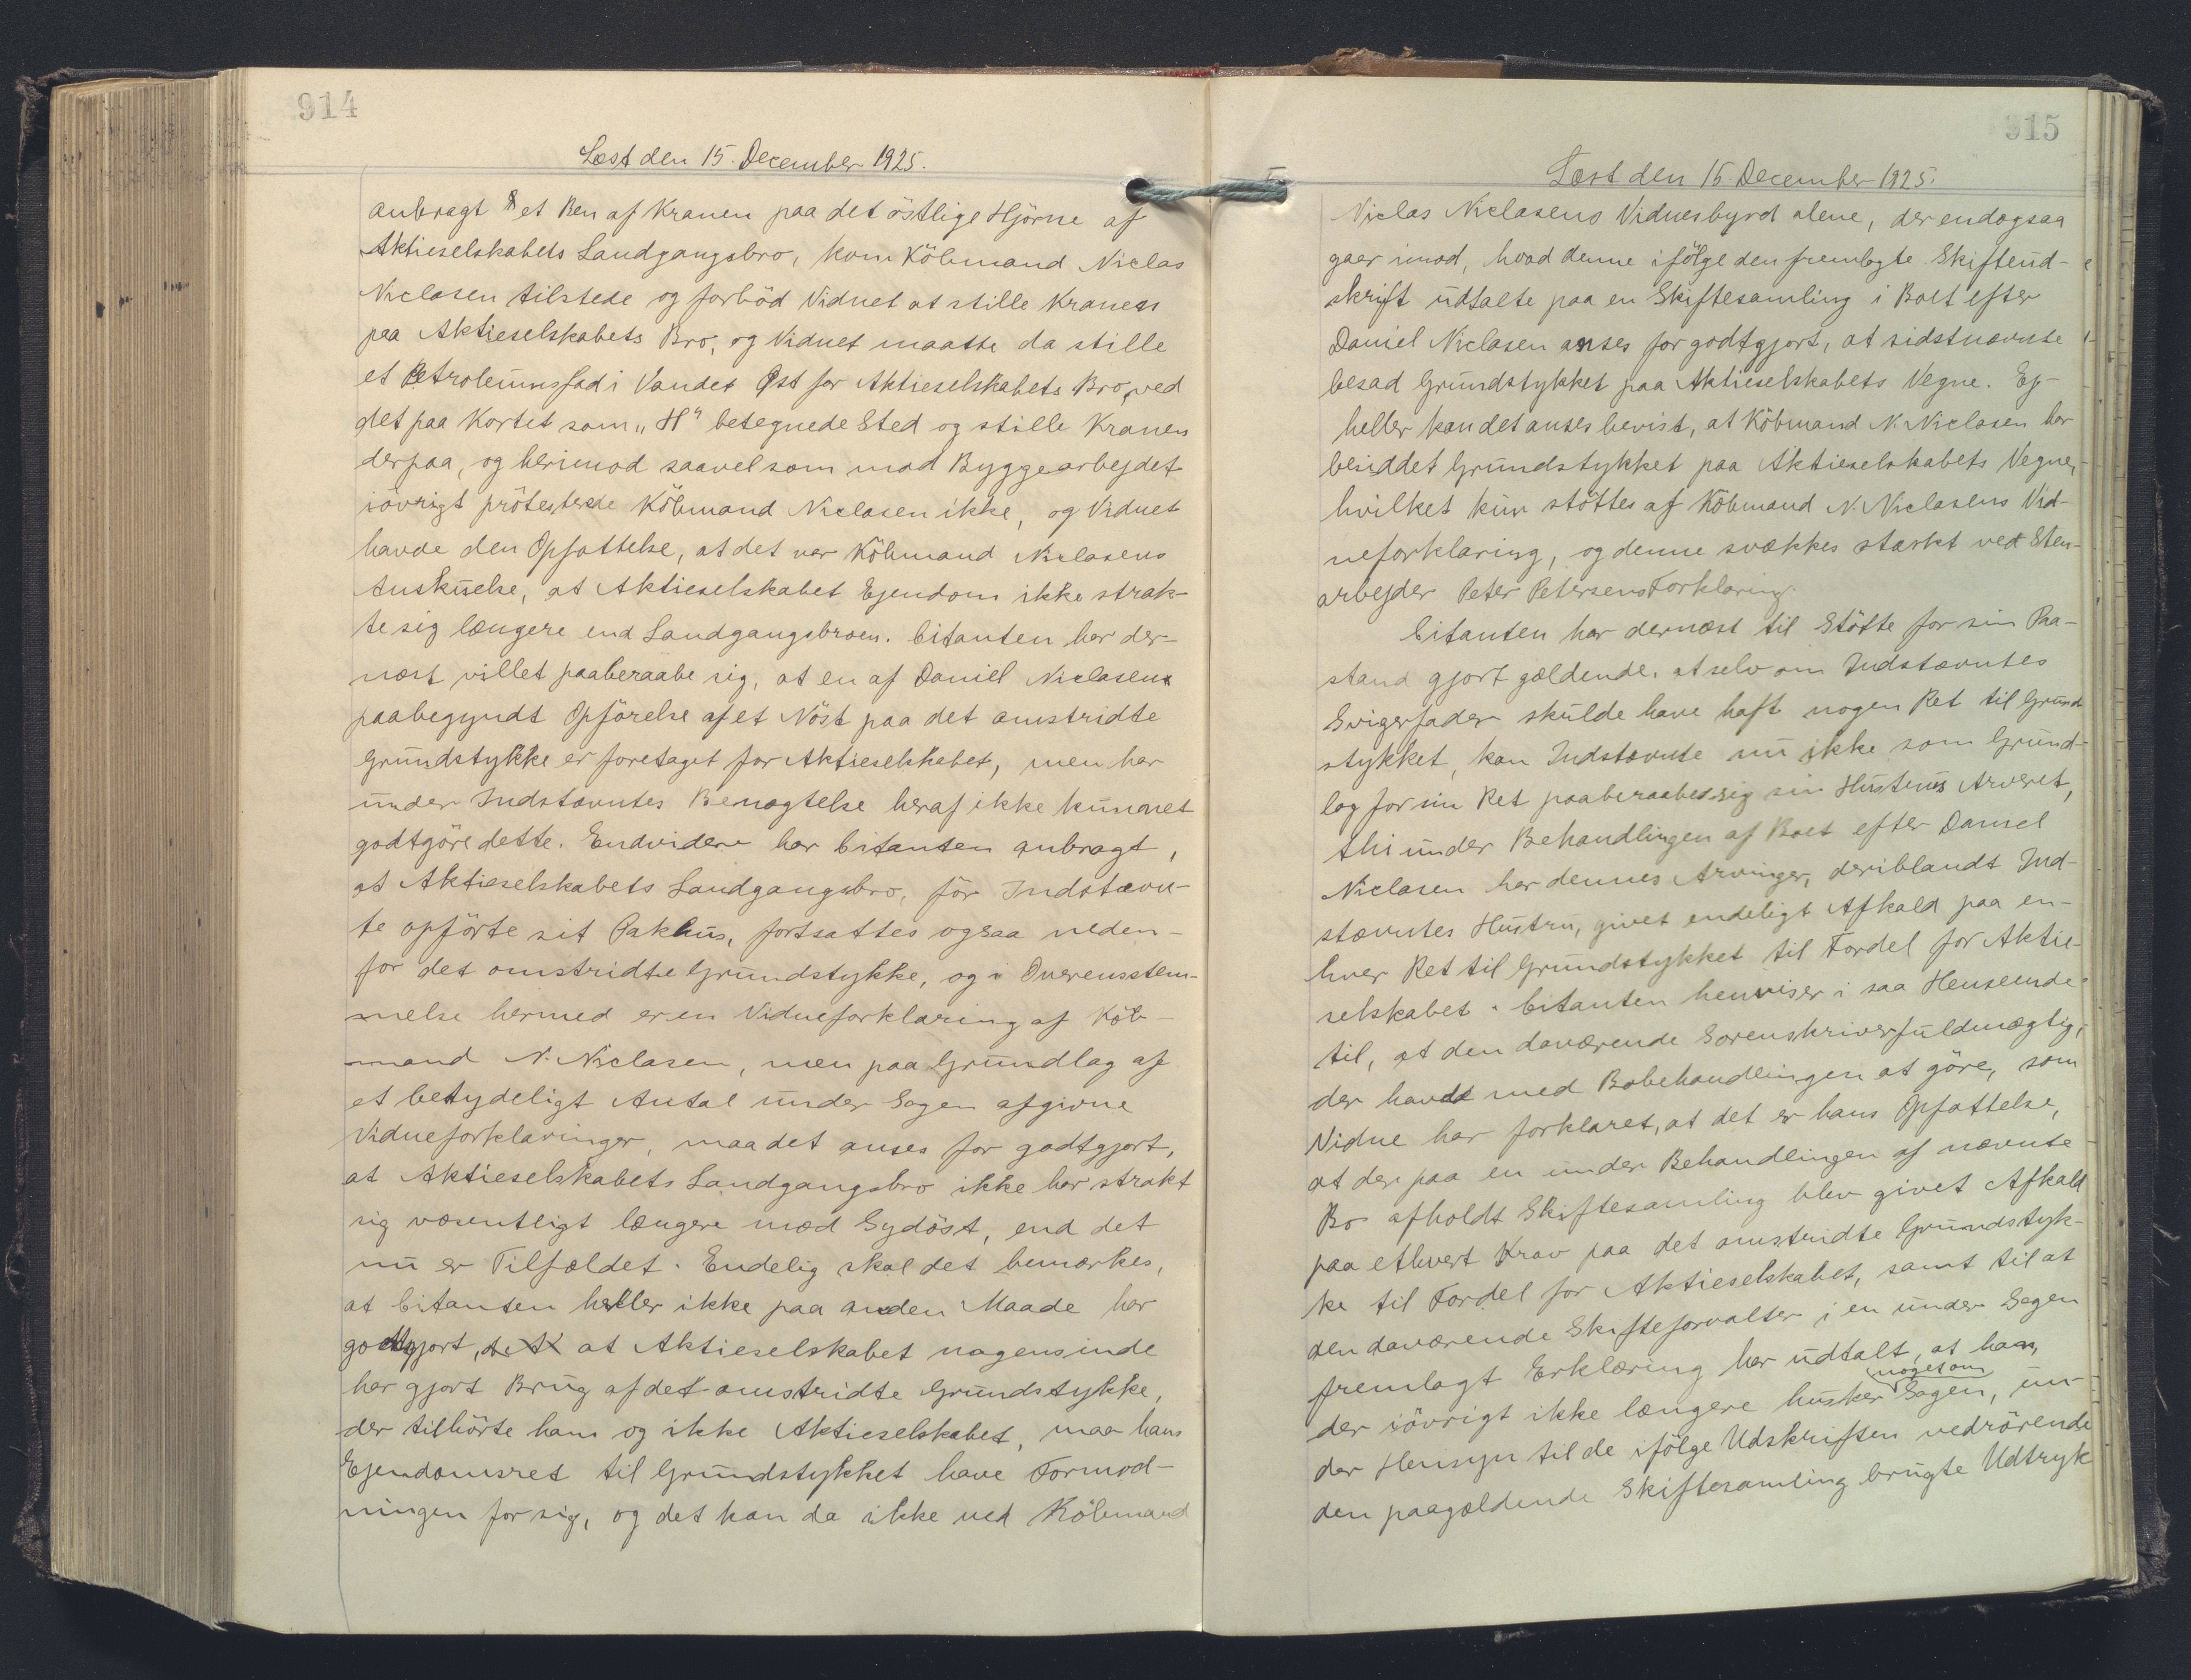 914
Læst den 15. December 1925.
anbragt et Ben af Kranen paa det östlige Hjörne af
Aktieselskabets Landgangsbro, kom Köbmand Niclas
Niclasen tilstede og forböd Vidnet at stille Kranen
paa Aktieselskabets Bro, og Vidnet maatte da stille
et Petroleumsfad i Vandet Øst for Aktieselskabets Bro, ved
det paa Kortet som „H" betegnede Sted og stille Kranen
derpaa, og herimod saavel som mod Byggearbejdet
iövrigt protesterede Köbmand Niclasen ikke, og Vidnet
havde den Opfattelse, at det var Köbmand Niclasens
Anskuelse, at Aktieselskabet Ejendom ikke strak-
te sig længere end Landgangsbroen. Citanten har der-
næst villet paaberaabe sig, at en af Daniel Niclasens
paabegyndt Opförelse af et Nöst paa det omstridte
Grundstykke er foretaget for Aktieselskabet, men har
under Indstævntes Benægtelse heraf ikke kunnet
godtgöre dette. Endvidere har Citanten anbragt,
at Aktieselskabets Landgangsbro, för Indstævn-
te opförte sit Pakhus, fortsattes ogsaa neden-
for det omstridte Grundstykke, og i Overensstem-
melse hermed er en Vidneforklaring af Köb-
mand N. Niclasen, men paa Grundlag af
et betydeligt Antal under Sagen afgivne
Vidneforklaringer, maa det anses for godtgjort,
at Aktieselskabets Landgangsbro ikke har strakt
sig væsentligt længere mod Sydöst, end det
nu er Tilfældet. Endelig skal det bemærkes,
at Citanten heller ikke paa anden Maade har
godtgjort, at Aktieselskabet nogensinde
har gjort Brug af det omstridte Grundstykke,
der tilhörte ham og ikke Aktieselskabet, maa hans
Ejendomsret til Grundstykket have Formod-
ningen for sig, og det kan da ikke ved Köbmand
915
Læst den 15 December 1925.
Niclas Niclasens Vidnesbyrd alene, der endogsaa
gaar imod, hvad denne ifölge den fremlagte Skifteud-
skrift udtalte paa en Skiftesamling i Boet efter
Daniel Niclasen anses for godtgjort, at sidstnævnte
besad Grundstykket paa Aktieselskabets Vegne. Ej-
heller kan det anses bevist, at Köbmand N. Niclasen har
besiddet Grundstykket paa Aktieselskabets Vegne,
hvilket kun stöttes af Köbmand N. Niclasens Vid-
neforklaring, og denne svækkes stærkt ved Sten-
arbejder Peter Petersens Forklaring.
Citanten har dernæst til Stötte for sin Paa-
stand gjort gældende, at selv om Indstævntes
Svigerfader skulde have haft nogen Ret til Grund-
stykket, kan Indstævnte nu ikke som Grund-
lag for sin Ret paaberaabe sig sin Hustrus Arveret,
thi under Behandlingen af Boet efter Daniel
Niclasen har dennes Arvinger, deriblandt Ind-
stævntes Hustru, givet endeligt Afkald paa en-
hver Ret til Grundstykket til Fordel for Aktie-
selskabet. Citanten henviser i saa Henseende
til, at den daværende Sorenskriverfuldmægtig,
der havde med Bobehandlingen at göre, som
Vidne har forklaret, at det er hans Opfattelse,
at der paa en under Behandlingen af nævnte
Bo afholdt Skiftesamling blev givet Afkald
paa ethvert Krav paa det omstridte Grundstyk-
ke til Fordel for Aktieselskabet, samt til at
den daværende Skifteforvalter i en under Sagen
fremlagt Erklæring har udtalt, at han,
der iövrigt ikke længere husker noget om Sagen, un-
der Hensyn til de ifölge Udskriften vedrörende
den paagældende Skiftesamling brugte Udtryk